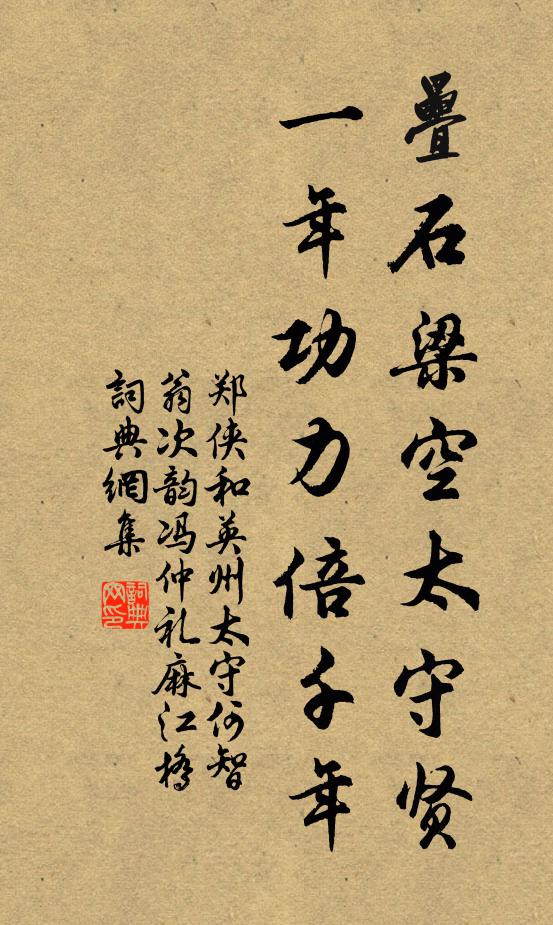 疊石梁空太守贤
一年功力倍千年
郑侠和英州太守何智
翁次韵冯仲礼麻江橋
詞典網集
詞典
网印